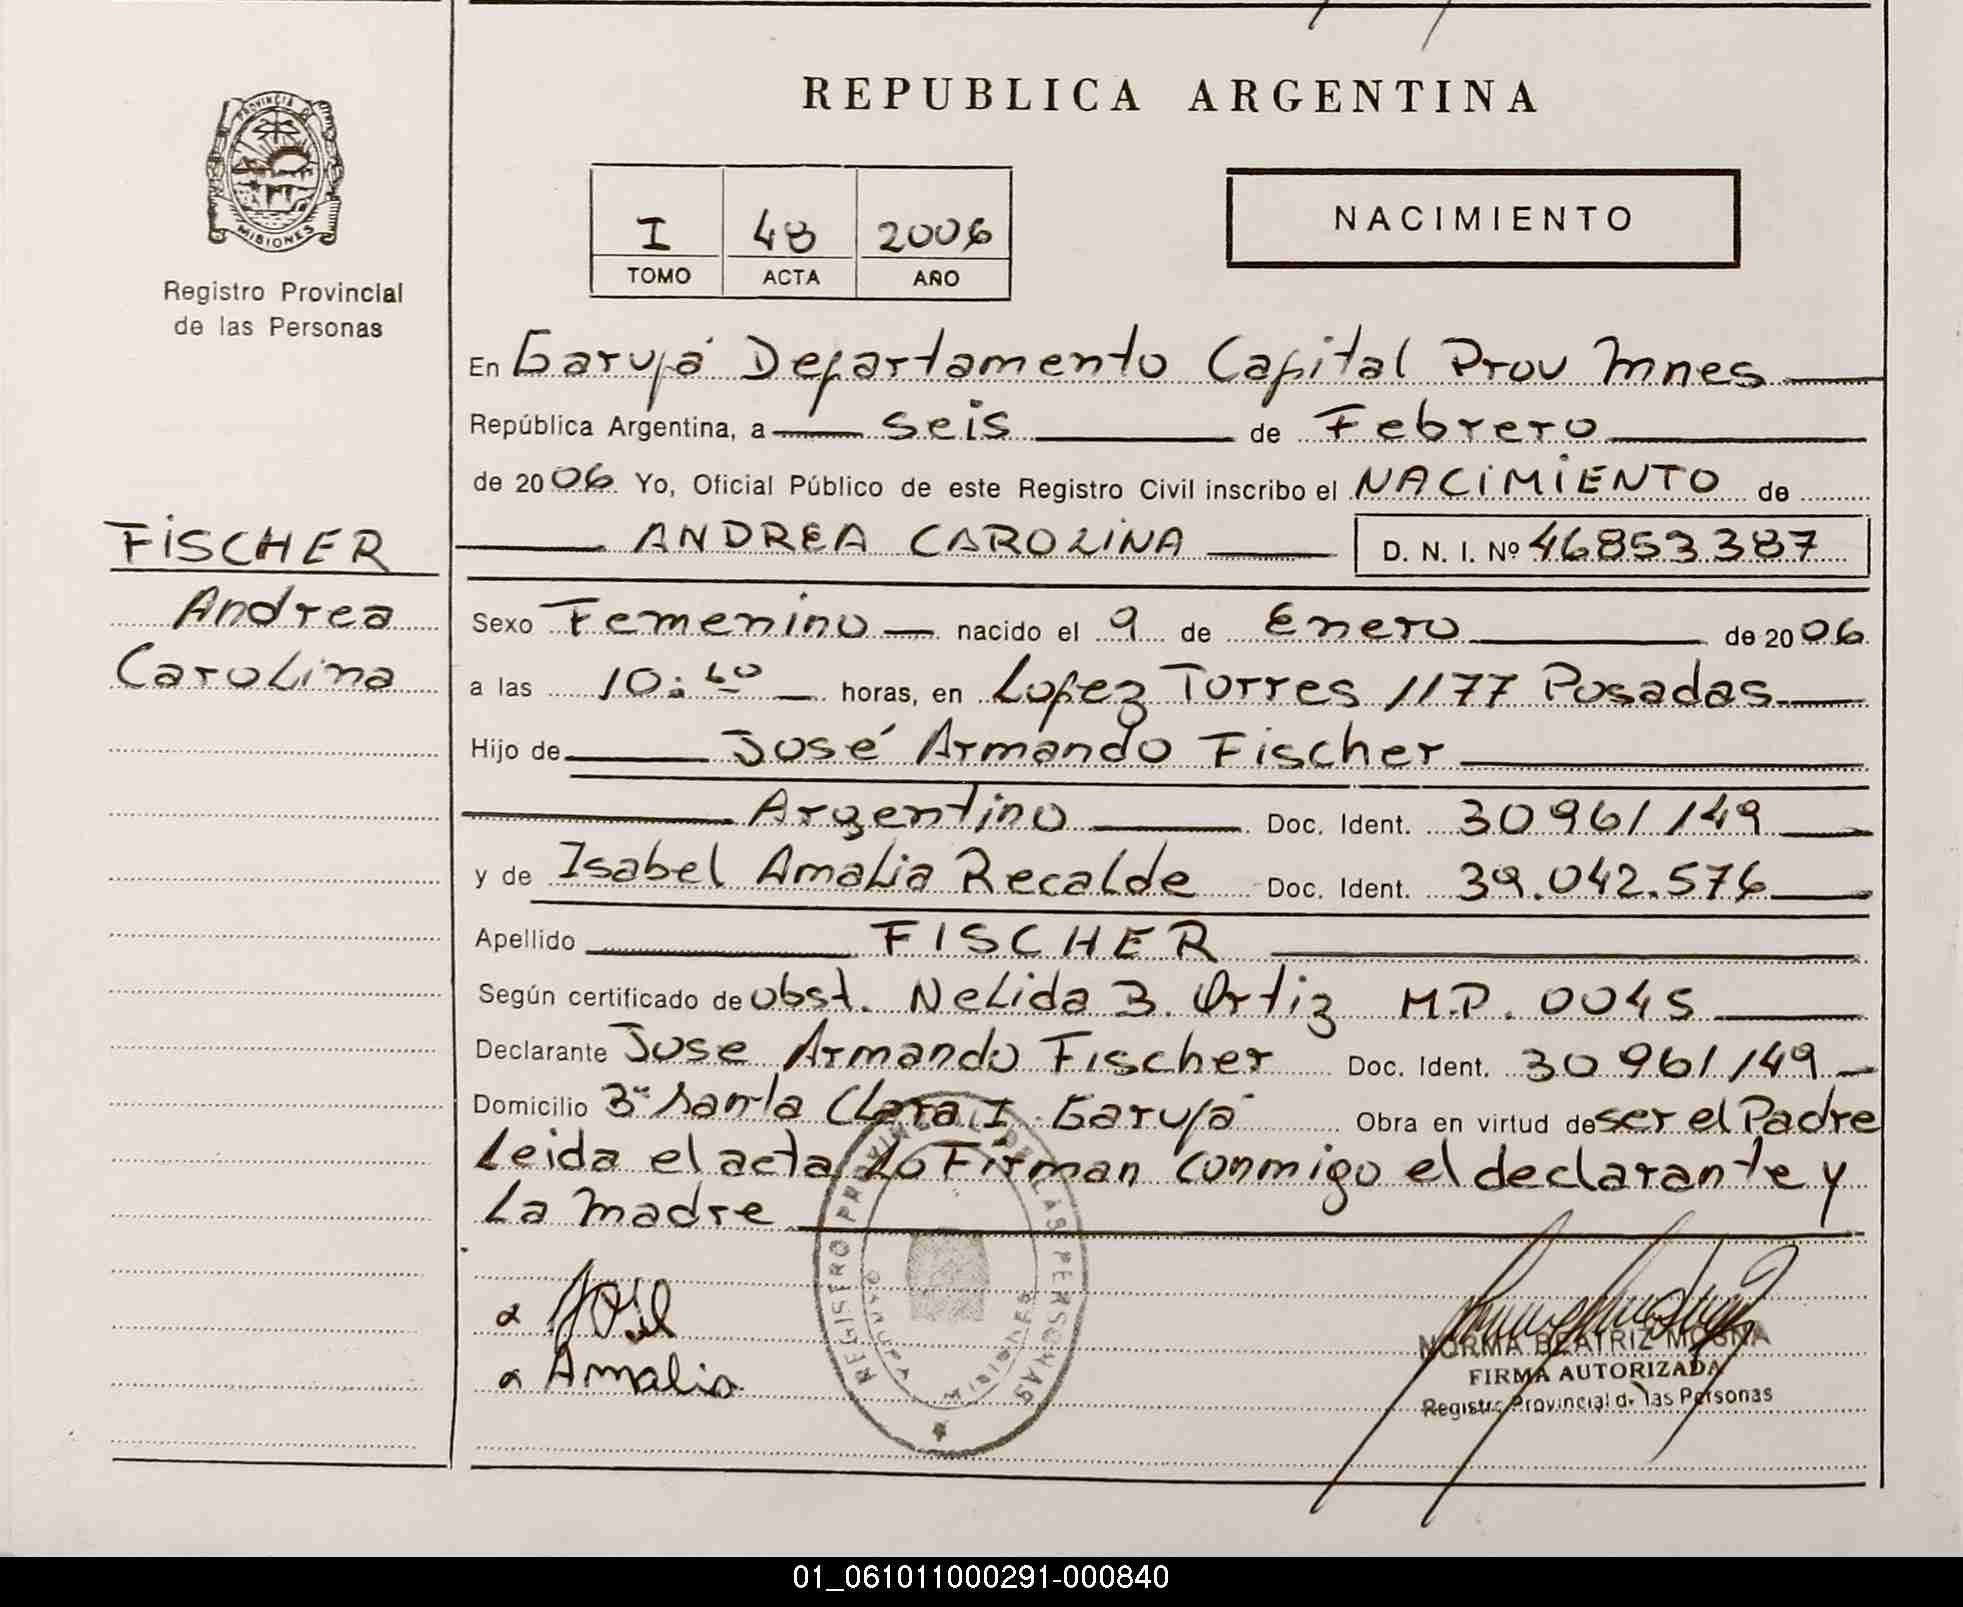 REPUBLICA ARGENTINA
PROVINCIA DE MISIONES
Registro Provincial
de las Personas
I 48 2006
TOMO ACTA AÑO
NACIMIENTO
En Garupá Departamento Capital Prov Mnes
República Argentina, a seis de Febrero
de 2006. Yo, Oficial Público de este Registro Civil inscribo el NACIMIENTO de
FISCHER
Andrea
Carolina
ANDREA CAROLINA D. N. I. Nº 46853387
Sexo Femenino nacido el 9 de Enero de 2006
a las 10: horas, en Lopez Torres 1177 Posadas
Hijo de José Armando Fischer
Argentino Doc. Ident. 30961149
y de Isabel Amalia Recalde Doc. Ident. 39.042.576
Apellido FISCHER
Según certificado de obst. Nelida B. Ortiz M.P. 0045
Declarante Jose Armando Fischer Doc. Ident. 30961149
Domicilio Santa Clara I Garupá Obra en virtud de ser el Padre
Leida el acta Lo Firman conmigo el declarante y
La madre
José
Amalia
REGISTRO PROVINCIAL DE LAS PERSONAS
MISIONES
NORMA BEATRIZ
FIRMA AUTORIZADA
Registro Provincial de las Personas
01_061011000291-000840